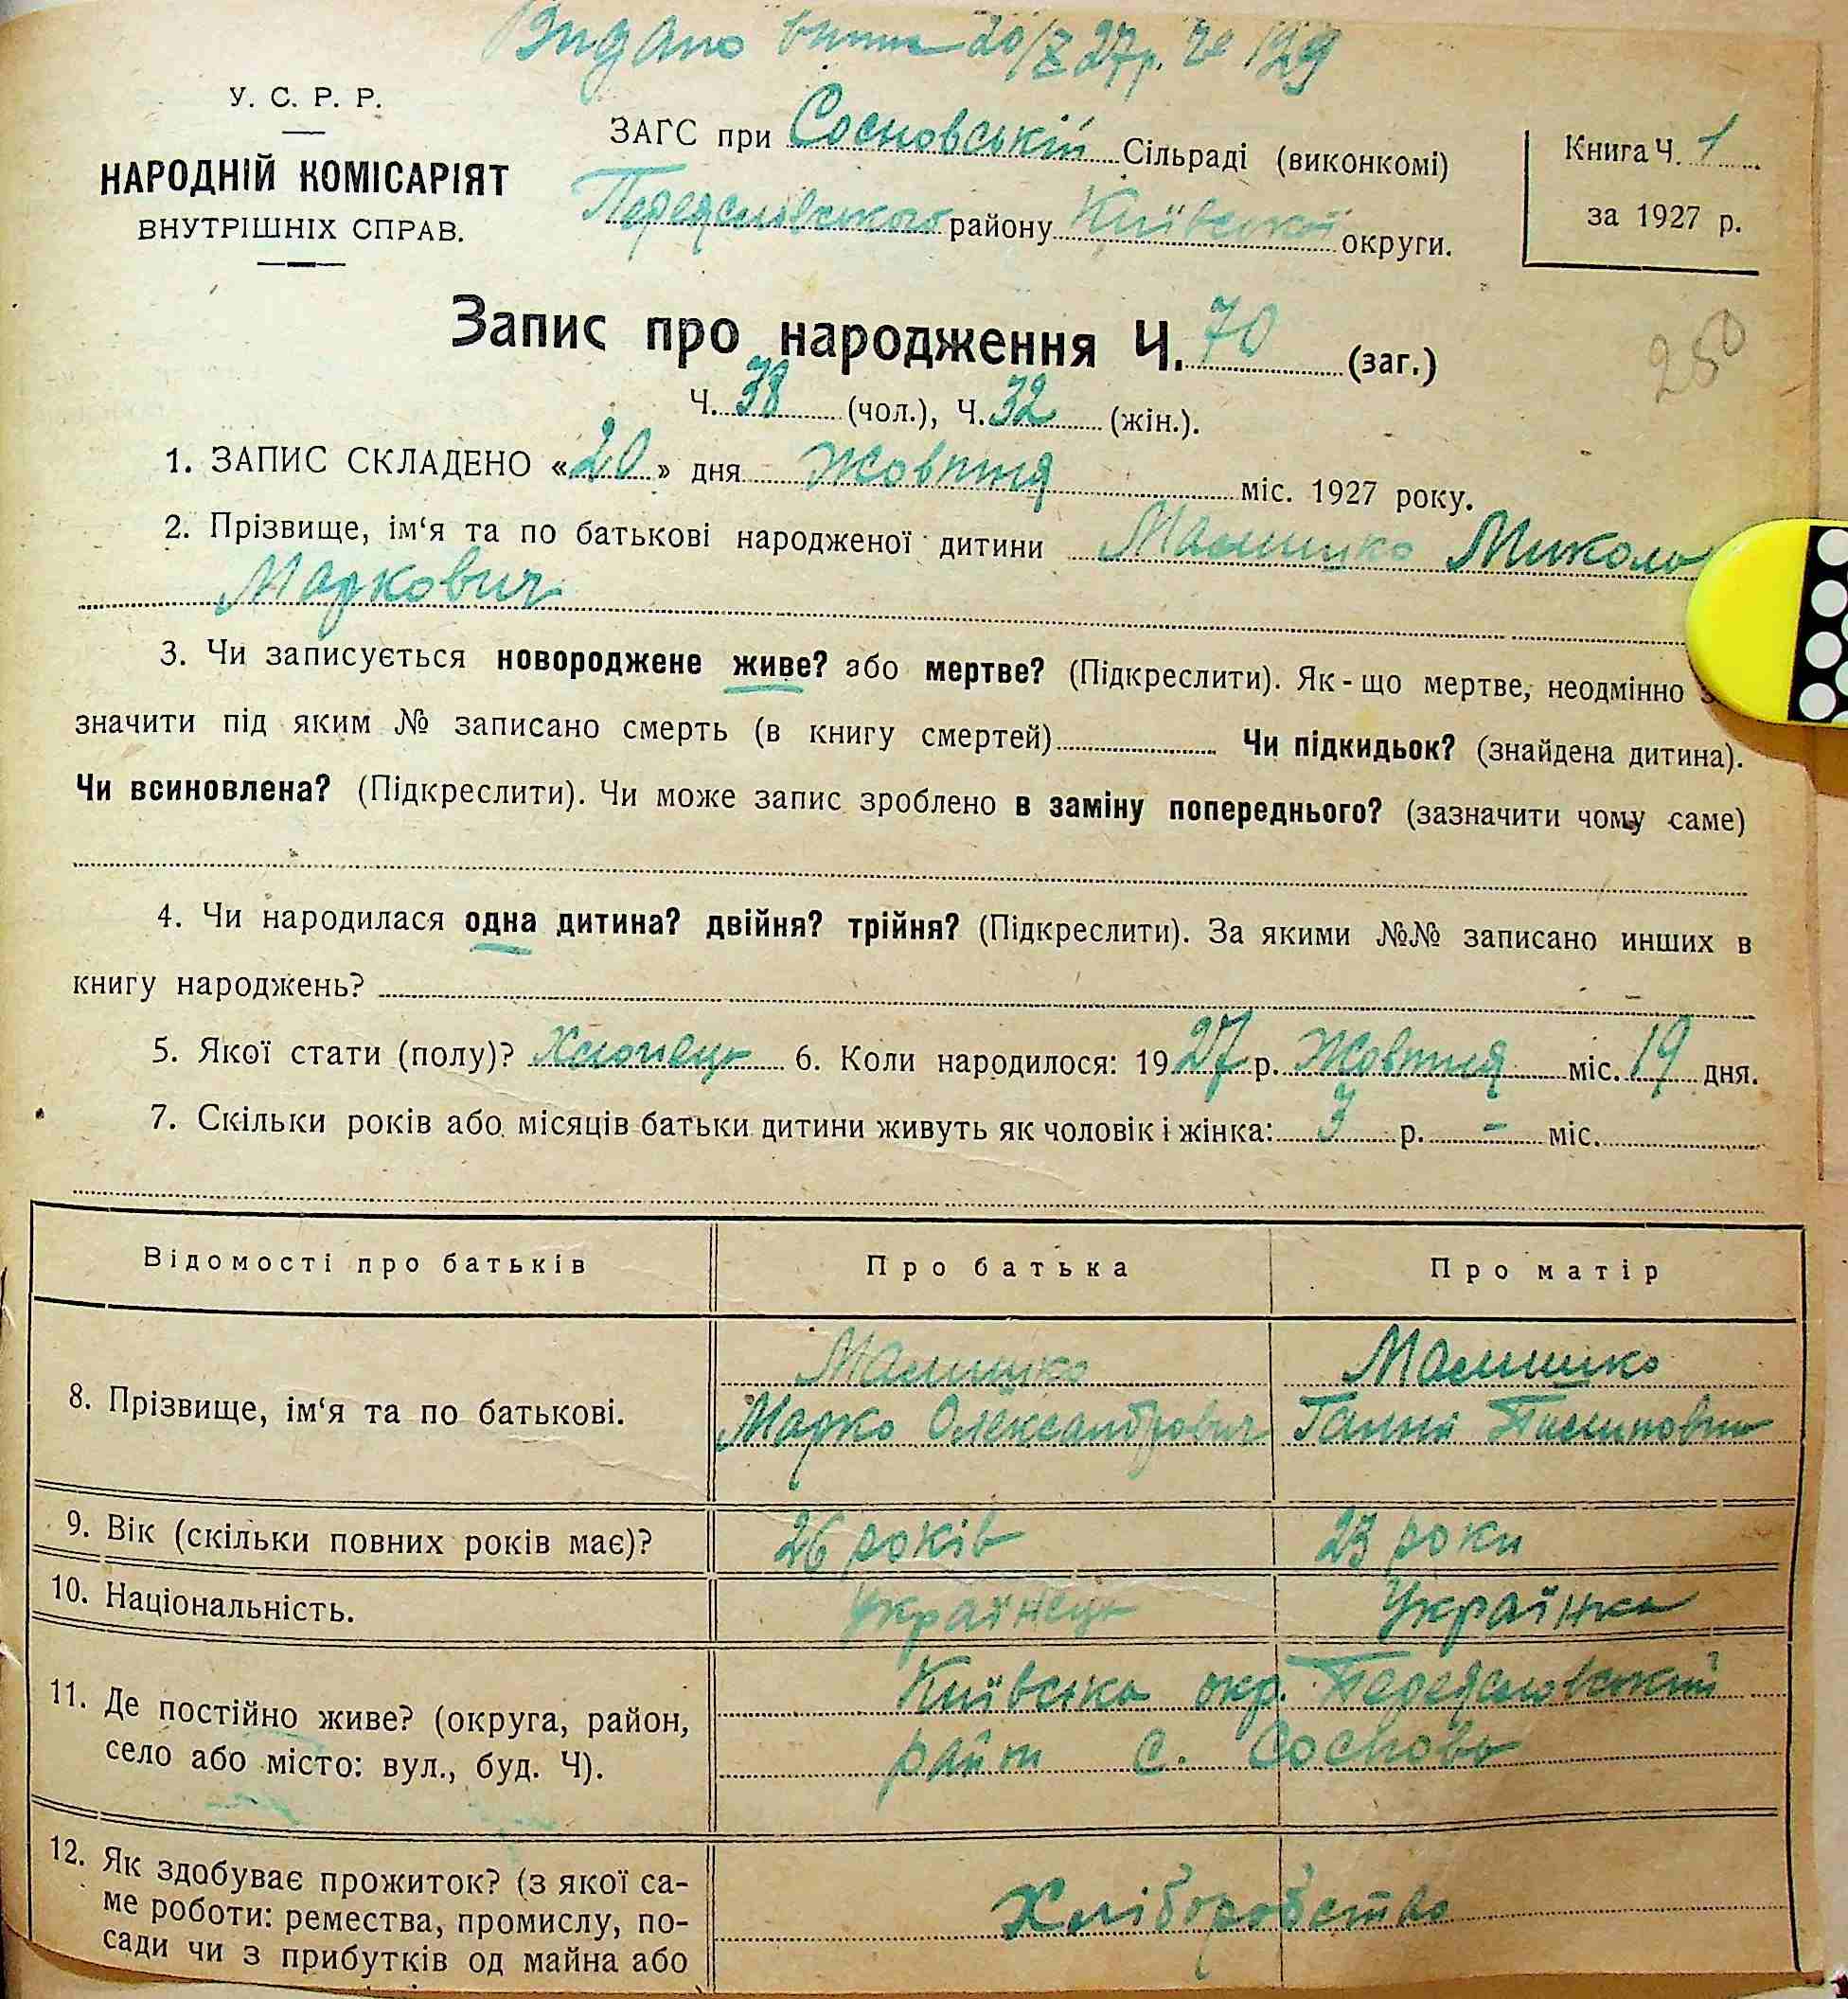 Видано випис 20/X 27р. № 129
У. С. Р. Р.
НАРОДНІЙ КОМІСАРІЯТ
ВНУТРІШНІХ СПРАВ.
ЗАГС при Сосновській Сільраді (виконкомі)
Переяславського району Київської округи.
Книга Ч. 1
за 1927 р.
Запис про народження Ч. 70 (заг.)
250
Ч. 38 (чол.), Ч. 32 (жін.).
1. ЗАПИС СКЛАДЕНО «20» дня Жовтня міс. 1927 року.
2. Прізвище, ім‘я та по батькові народженої дитини Малишко Микола
Маркович
3. Чи записується новороджене живе? або мертве? (Підкреслити). Як-що мертве, неодмінно
значити під яким № записано смерть (в книгу смертей) Чи підкидьок? (знайдена дитина).
Чи всиновлена? (Підкреслити). Чи може запис зроблено в заміну попереднього? (зазначити чому саме)
4. Чи народилася одна дитина? двійня? трійня? (Підкреслити). За якими №№ записано инших в
книгу народжень? –
5. Якої стати (полу)? Хлопець 6. Коли народилося: 1927 р. Жовтня міс. 19 дня.
7. Скільки років або місяців батьки дитини живуть як чоловік і жінка: 3 р. - міс.
Відомості про батьків Про батька Про матір
8. Прізвище, ім‘я та по батькові.
Малишко
Марко Олександрович
Малишко
Ганна Пилиповна
9. Вік (скільки повних років має)? 26 років 23 роки
10. Національність. Українець Українка
11. Де постійно живе? (округа, район,
село або місто: вул., буд. Ч).
Київська окр. Переяславський
район с. Соснова
12. Як здобуває прожиток? (з якої са-
ме роботи: ремества, промислу, по-
сади чи з прибутків од майна або
Хліборобство